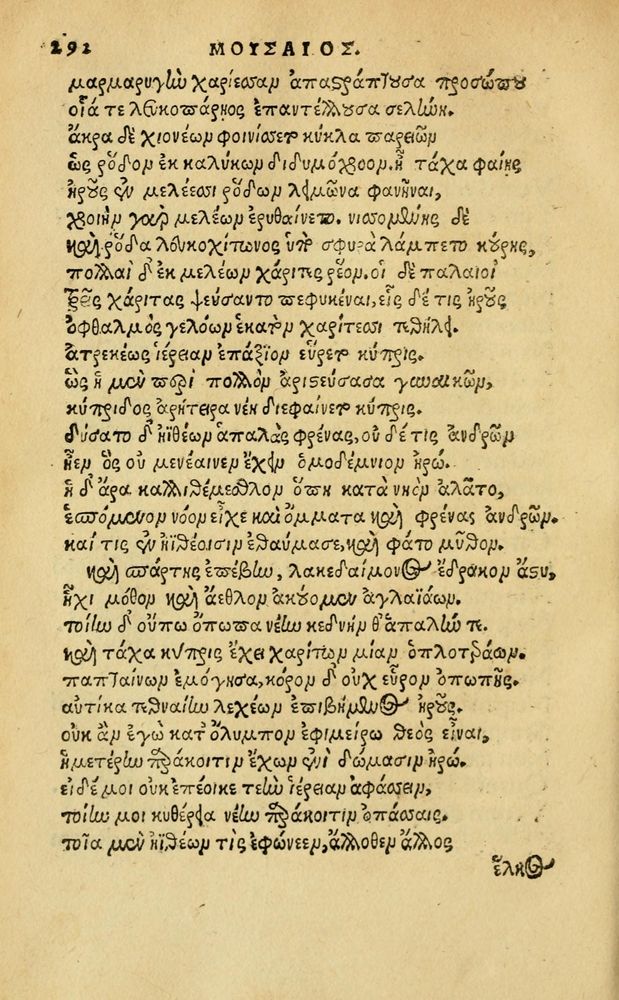 292 ΜΟΥΣΑΙΟΣ.
μαρμαρυγὼ χαρίεσσαν ἀπαστράπτουσα προσώπου
οἷά τε λευκοπάρῃος ἐπαντέλλουσα σελώη.
ἄκρα δὲ χιονέων φοινίσσετο κύκλα παρειῶν
ὡς ῥόδον ἐκ καλύκων διδυμόχροον. ἢ τάχα φαίης
ἡροῦς ἐν μελέεσσι ῥόδων λειμῶνα φανῆναι,
χροιὴν γὰρ μελέων ἐρυθαίνετο. νισσομένης δὲ
καὶ ῥόδα λευκοχίτωνος ὑπὸ σφυρὰ λάμπετο κούρης,
πολλαὶ δ' ἐκ μελέων χάριτες ῥέον. οἱ δὲ παλαιοὶ
τρεῖς χάριτας ψεύσαντο πεφυκέναι, εἷς δέ τις ἡροῦς
ὀφθαλμὸς γελόων ἑκατὸν χαρίτεσσι τεθήλει.
ἀτρεκέως ἱέρειαν ἐπάξιον εὕρετο κύπρις.
ὣς ἡ μὲν περὶ πολλὸν ἀριστεύσασα γυναικῶν,
κύπριδος ἀρήτειρα νέη διεφαίνετο κύπρις.
δύσατο δ' ἠϊθέων ἁπαλὰς φρένας, οὐ δέ τις ἀνδρῶν
ἦεν ὃς οὐ μενέαινεν ἔχειν ὁμοδέμνιον ἡρώ.
ἡ δ' ἄρα καλλιθέμεθλον ὅπη κατὰ νηὸν ἀλᾶτο,
ἑσπόμενον νόον εἶχε καὶ ὄμματα καὶ φρένας ἀνδρῶν.
καί τις ἐν ἠϊθέοισιν ἐθαύμασε, καὶ φάτο μῦθον.
καὶ σπάρτης ἐπέβω, λακεδαίμονος ἔδρακον ἄστυ,
ἧχι μόθον καὶ ἄεθλον ἀκούομεν ἀγλαϊάων.
τοίω δ' οὔπω ὄπωπα νέω κεδνήν θ' ἁπαλώ τε.
καὶ τάχα κύπρις ἔχει χαρίτων μίαν ὁπλοτεράων.
παπταίνων ἐμόγησα, κόρον δ' οὐχ εὗρον ὀπωπῆς.
αὐτίκα τεθναίω λεχέων ἐπιβήμενος ἡροῦς.
οὐκ ἂν ἐγὼ κατ' ὄλυμπον ἐφιμείρω θεὸς εἶναι,
ἡμετέρω παράκοιτιν ἔχων ἐνὶ δώμασιν ἡρώ.
εἰ δέ μοι οὐκ ἐπέοικε τεὼ ἱέρειαν ἀφάσσειν,
τοίω μοι κυθέρεια νέω παράκοιτιν ὀπάσσαις.
τοῖα μὲν ἠϊθέων τὶς ἐφώνεεν, ἄλλοθεν ἄλλος
ἕλκος